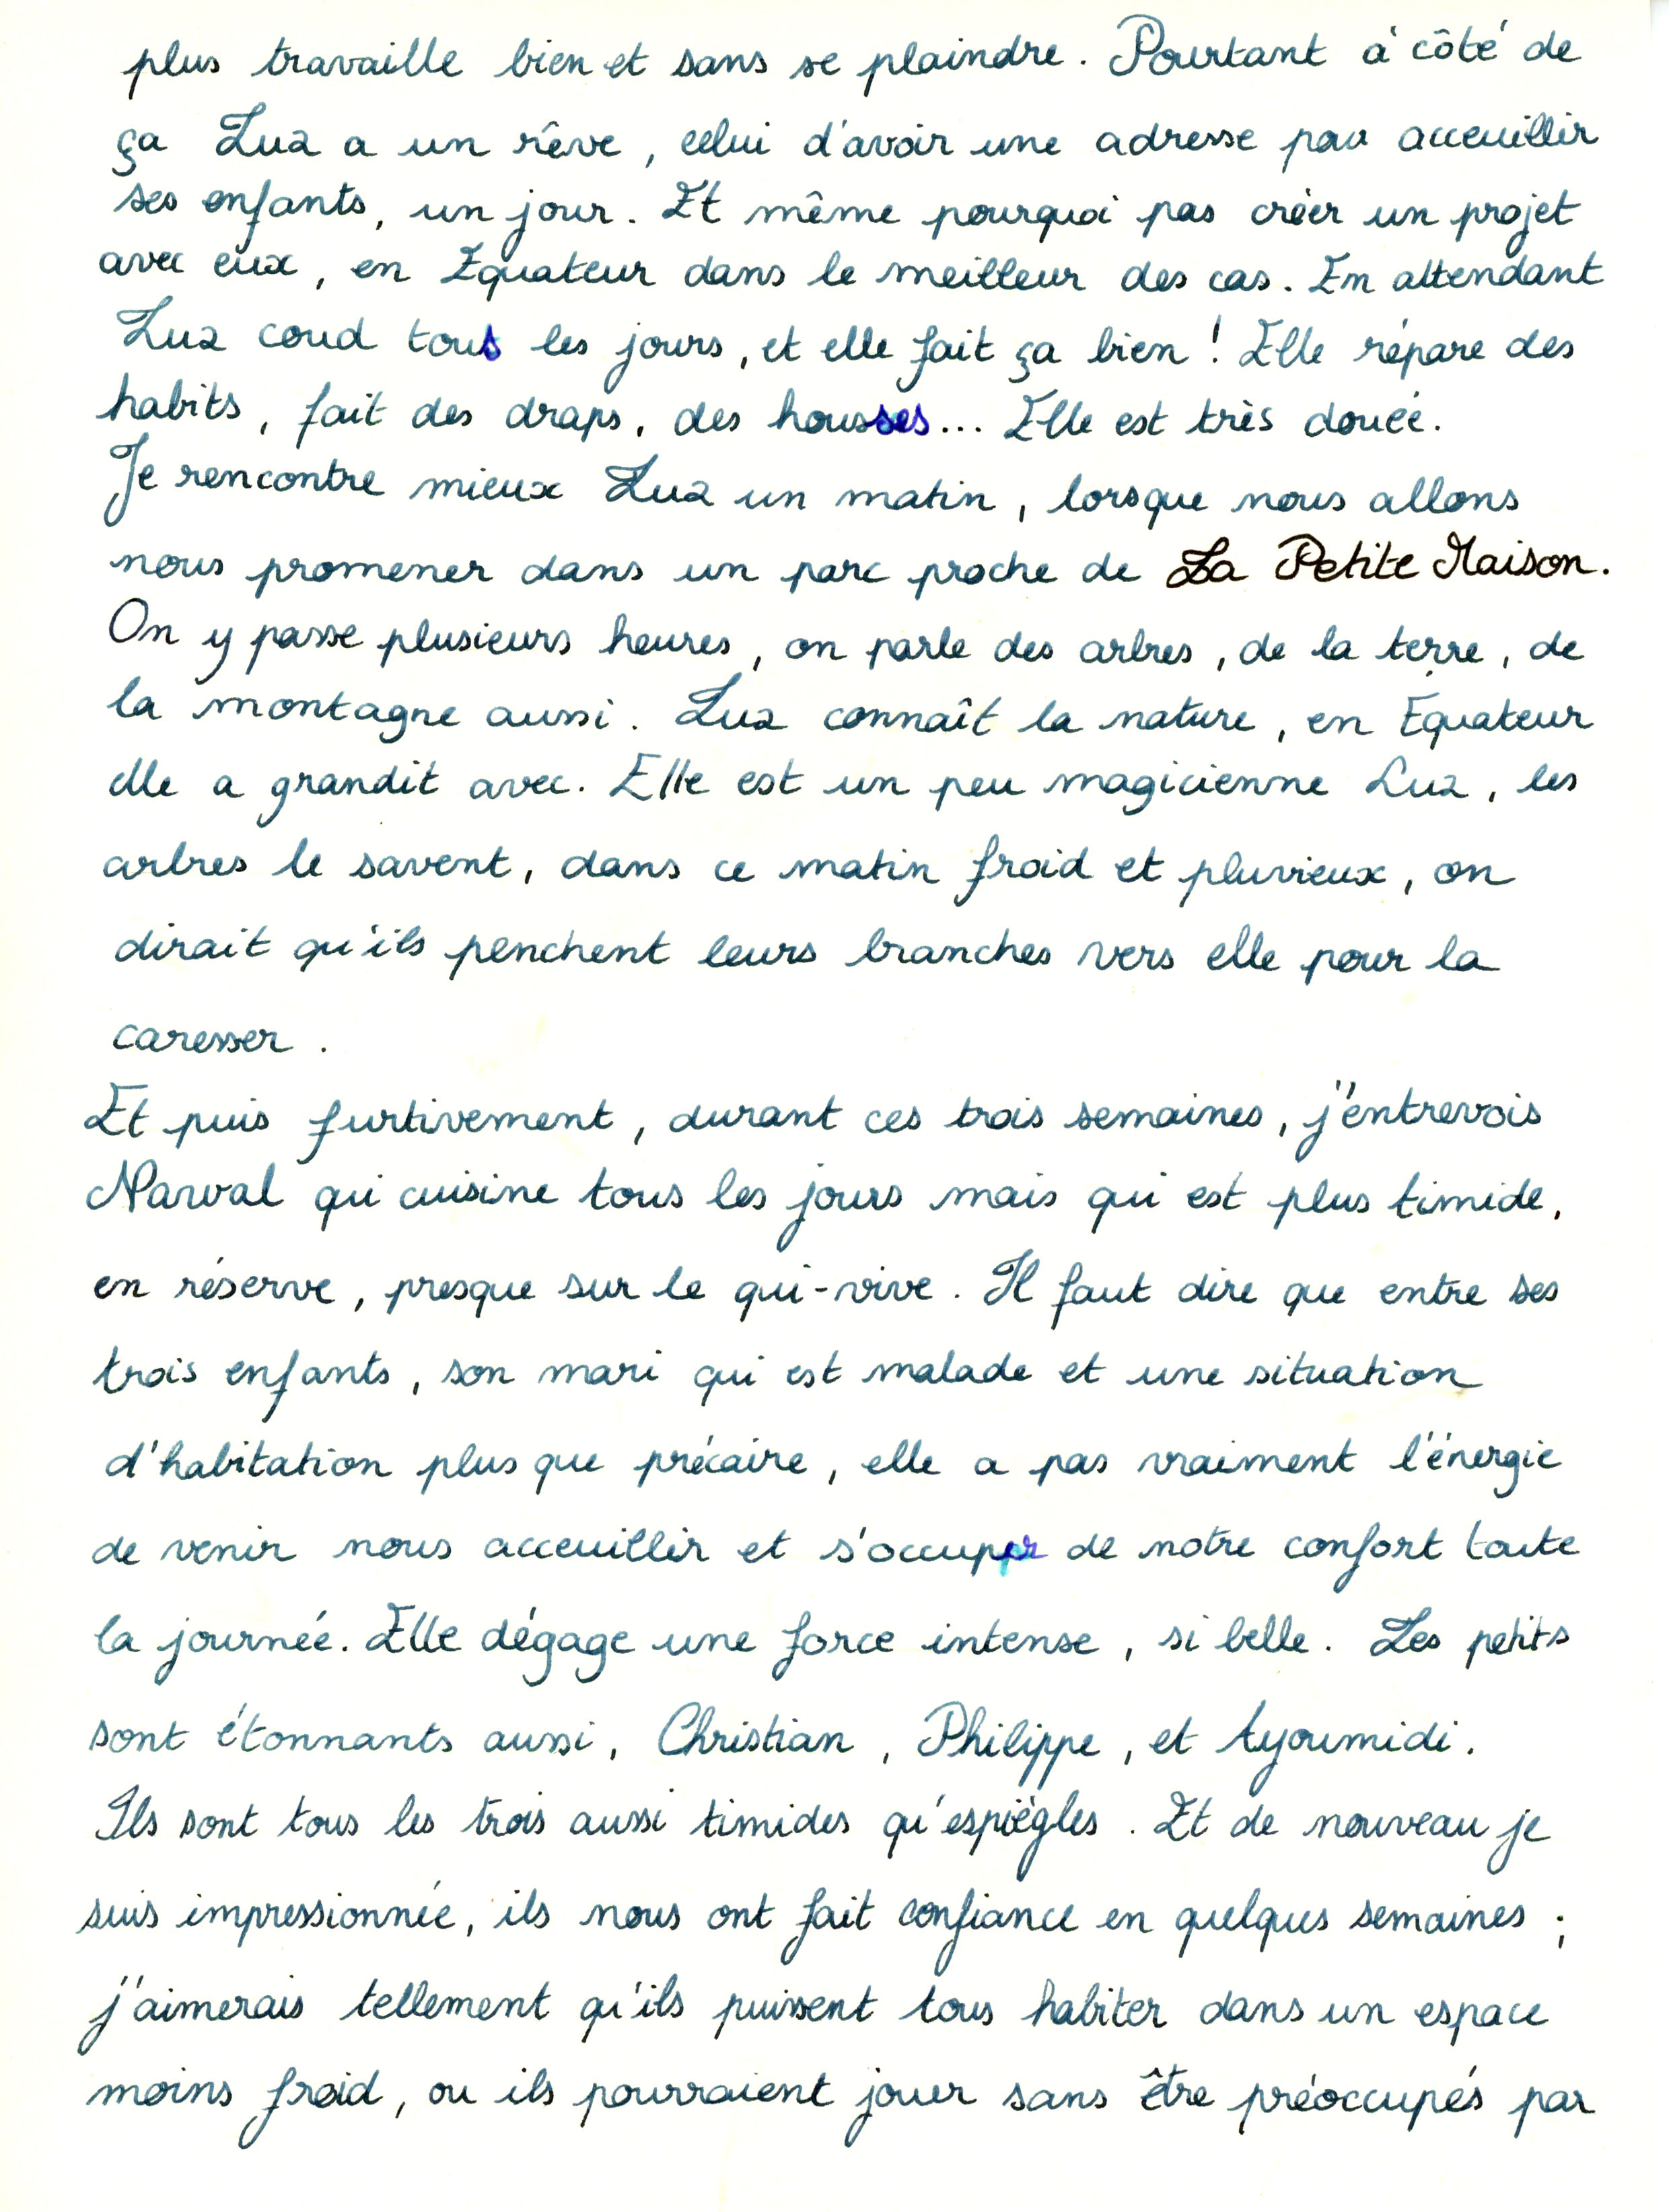 plus travaille bien et sans se plaindre. Pourtant à côté de
ça Luz a un rêve, celui d'avoir une adresse pour acceuillir
ses enfants, un jour. Et même pourquoi pas créer un projet
avec eux, en Equateur dans le meilleur des cas. En attendant
Luz coud tous les jours, et elle fait ça bien ! Elle répare des
habits, fait des draps, des housses... Elle est très douée.
Je rencontre mieux Luz un matin, lorsque nous allons
nous promener dans un parc proche de La Petite Maison.
On y passe plusieurs heures, on parle des arbres, de la terre, de
la montagne aussi. Luz connaît la nature, en Equateur
elle a grandit avec. Elle est un peu magicienne Luz, les
arbres le savent, dans ce matin froid et pluvieux, on
dirait qu'ils penchent leurs branches vers elle pour la
caresser.
Et puis furtivement, durant ces trois semaines, j'entrevois
Narval qui cuisine tous les jours mais qui est plus timide,
en réserve, presque sur le qui-vive. Il faut dire que entre ses
trois enfants, son mari qui est malade et une situation
d'habitation plus que précaire, elle a pas vraiment l'énergie
de venir nous acceuillir et s'occuper de notre confort toute
la journée. Elle dégage une force intense, si belle. Les petits
sont étonnants aussi, Christian, Philippe, et Ayoumidi.
Ils sont tous les trois aussi timides qu'espiègles. Et de nouveau je
suis impressionnée, ils nous ont fait confiance en quelques semaines ;
j'aimerais tellement qu'ils puissent tous habiter dans un espace
moins froid, ou ils pourraient jouer sans être préoccupés par